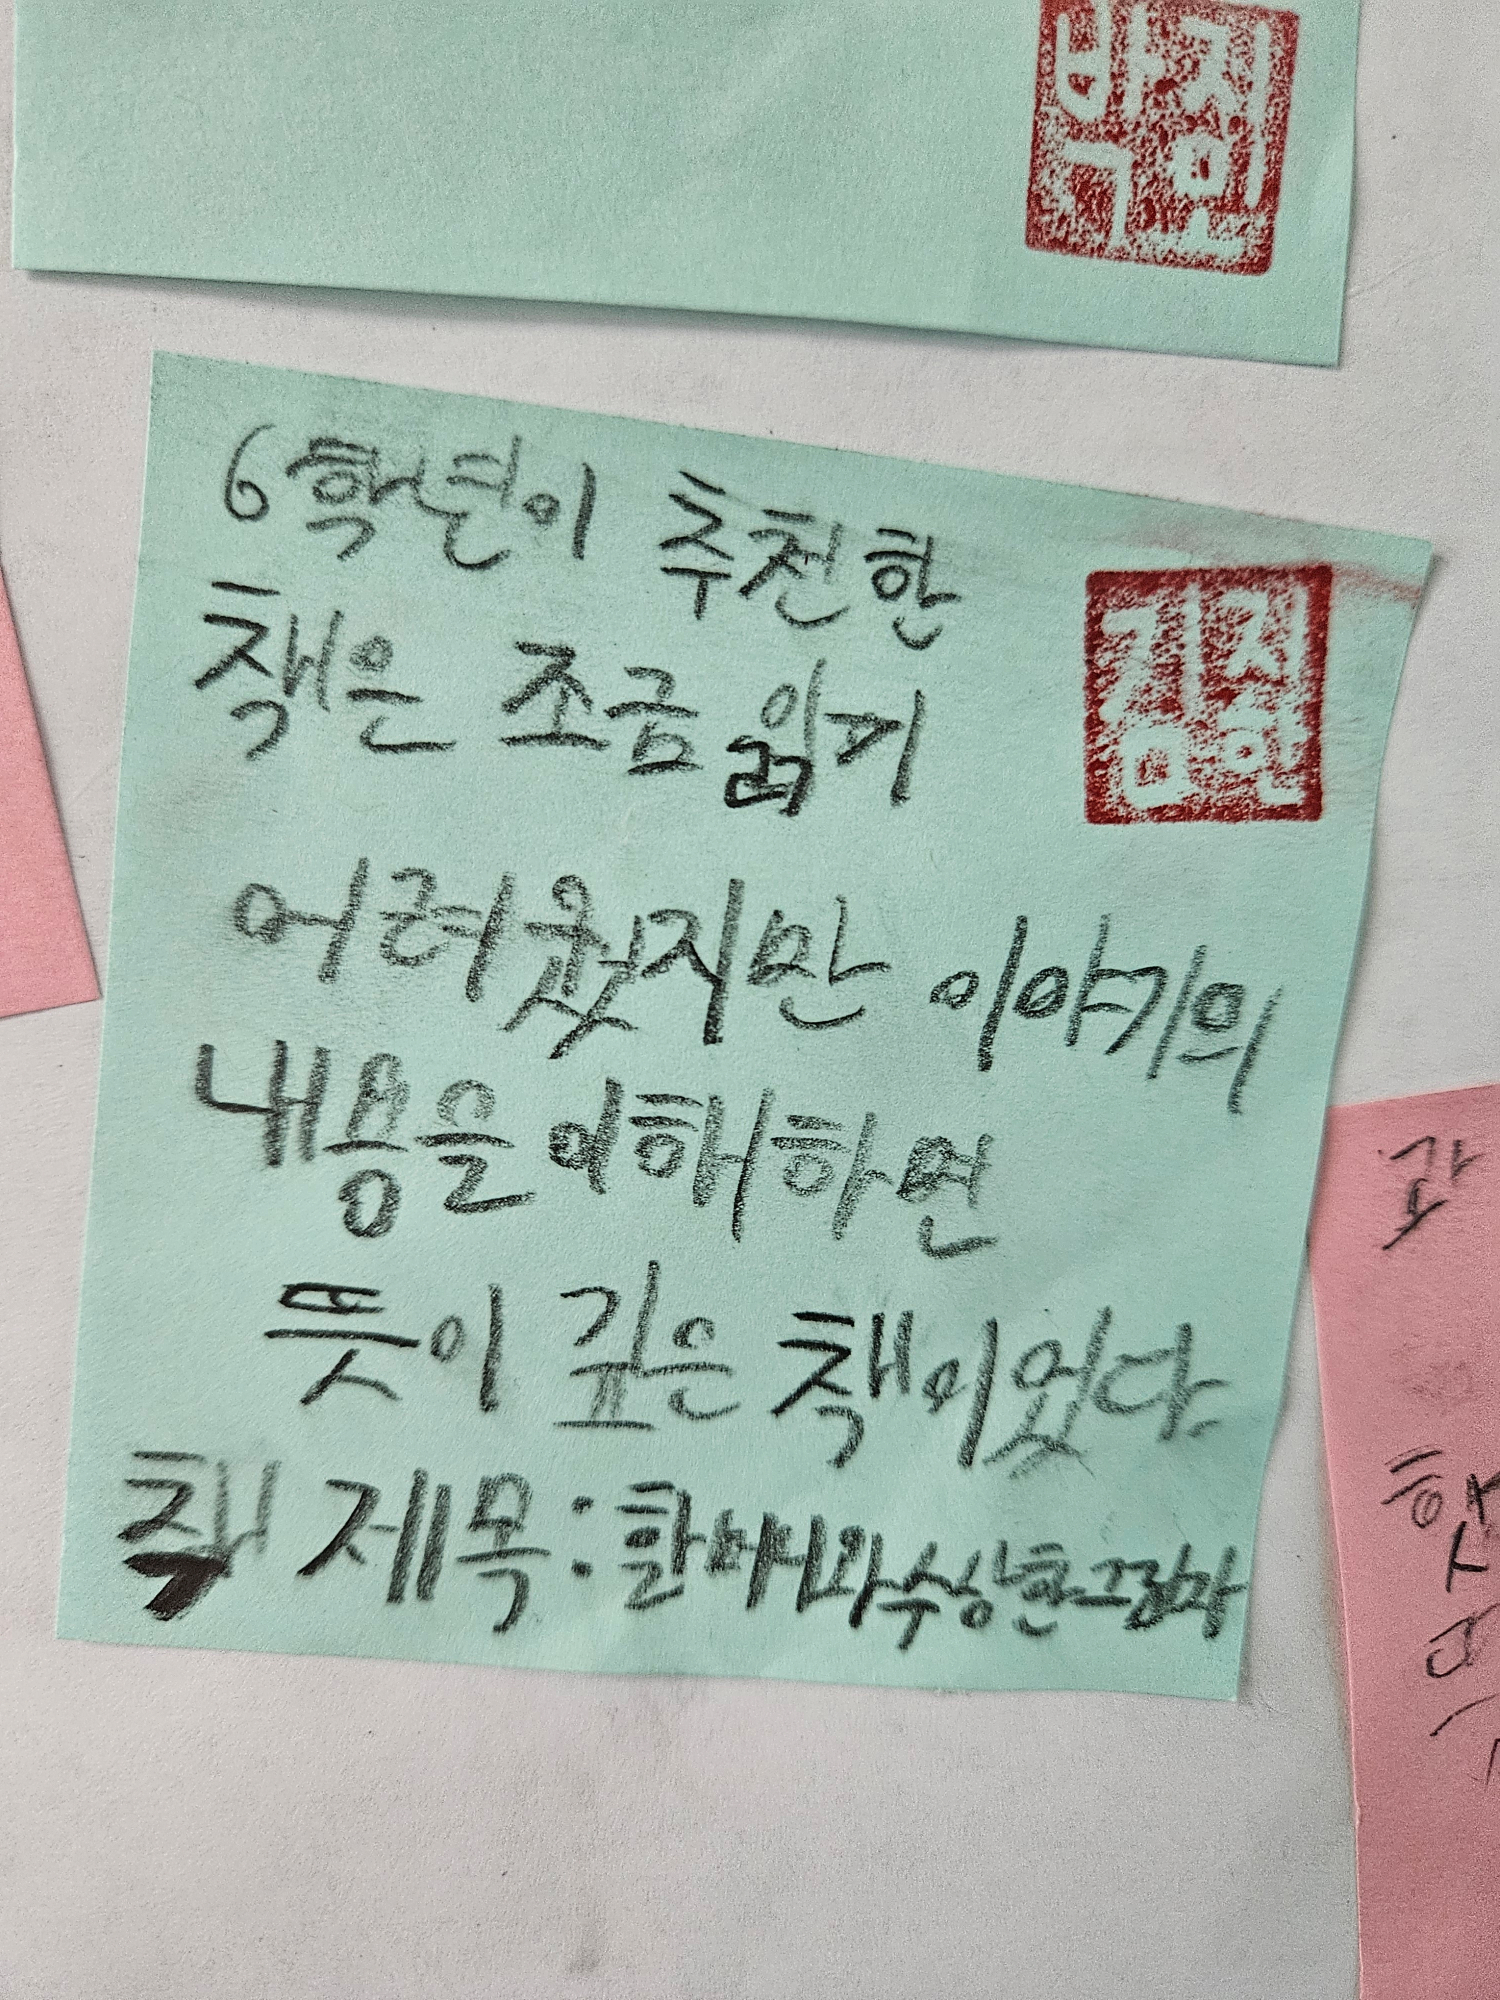 박진
민
6학년이 추천한
책은 조금 읽기
김정
어려웠지만 이야기의
내용을 이해하면
뜻이 깊은 책이었다.
책 제목: 할머니와수상한그림자